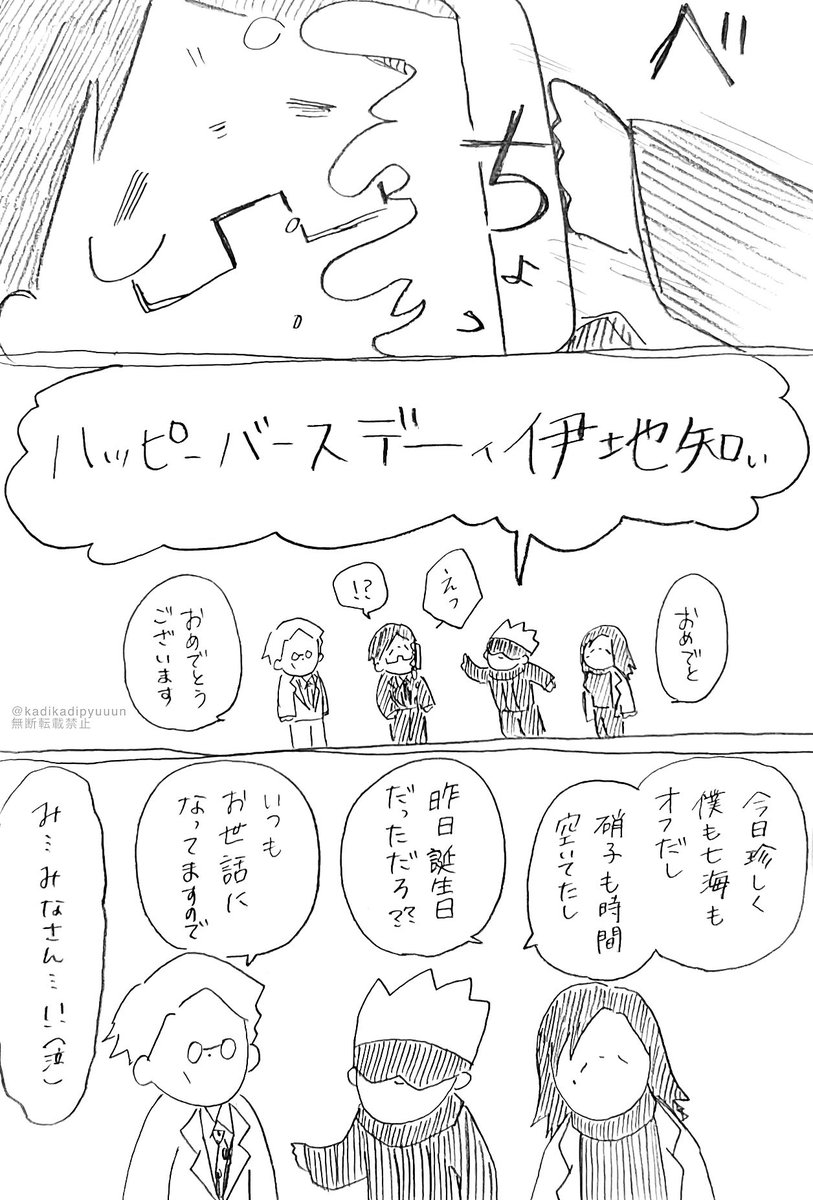 べ
ちょっ
ハッピーバースデーィ伊地知ぃ
おめでと
えっ
!?
おめでとう
ございます
@kadikadipyuuun
無断転載禁止
今日珍しく
僕も七海も
オフだし
硝子も時間
空いてたし
昨日誕生日
だっただろ??
いつも
お世話に
なってますので
み…みなさん…!!(泣)